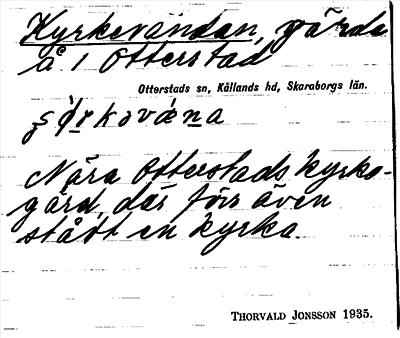 Kyrkevändan, gärds-
å i Otterstad
Otterstads sn, Kållands hd, Skaraborgs län.
Nära Otterstads kyrko-
gård, där förr även
stått en kyrka.
THORVALD JONSSON 1935.